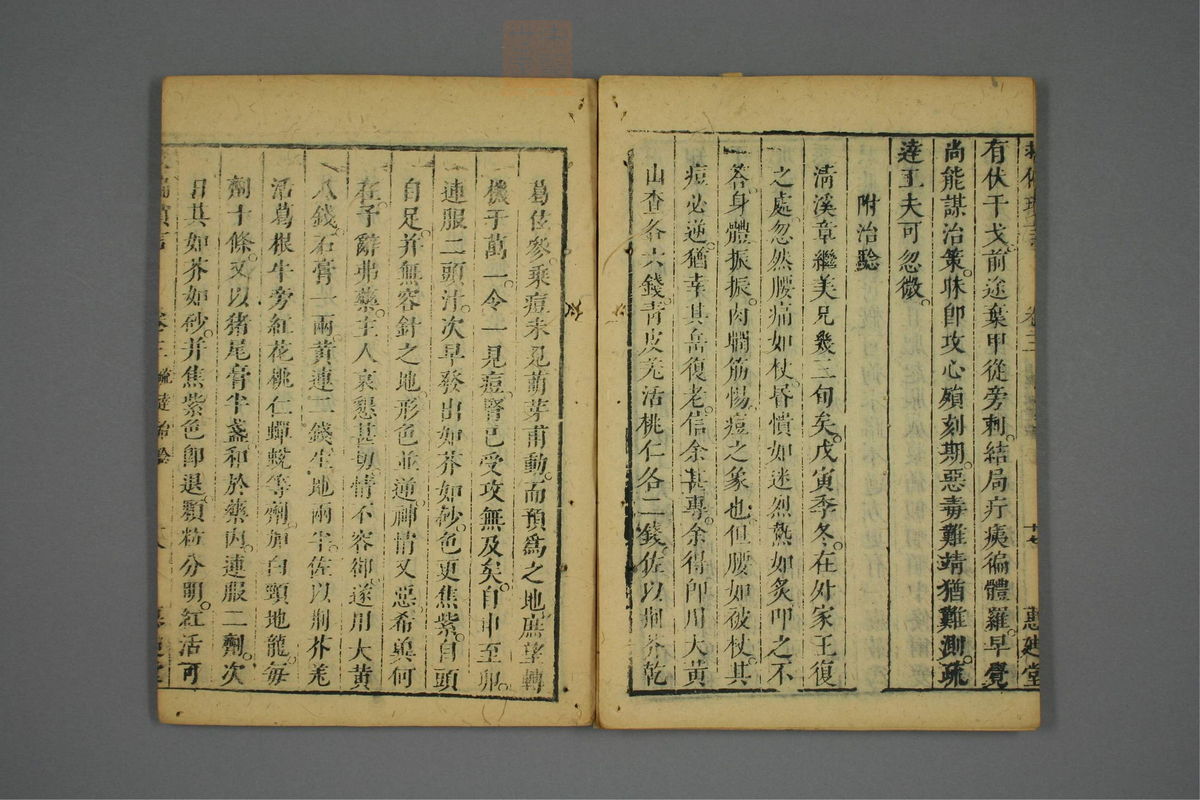 有伏干戈。前途葉甲從旁刺。結局疔痍徧體羅。早覺
尚能謀治策。昧卽攻心殞刻期。惡毒難靖猶難測。疏
達工夫可忽微。
附治驗
淸溪章繼美兄幾三旬矣。戊寅季冬。在外家王復
之處。忽然腰痛如杖。昏憒如迷。烈熱如炙。呷之不
荅。身體振振。肉瞤筋惕。痘之象也。但腰如被杖。其
痘必逆。猶幸其岳復老。信余甚專。余得卽用大黃
山查各六錢。靑皮羌活桃仁各二錢。佐以荆芥乾
葛位參。乘痘未見萠芽甫動。而預爲之地。庶望轉
機于萬一。令一見痘。腎已受攻無及矣。自申至卯。
連服二頭汁。次早發出如芥如砂。色更焦紫。自頭
自足。并無容針之地。形色並逆。神情又惡。希奥何
在。予辭弗藥。主人哀懇甚切。情不容卻。遂用大黃
八錢。石膏一兩。黃連二錢。生地兩半。佐以荆芥羌
活葛根牛旁紅花桃仁蟬蛻等劑。加白頸地龍。每
劑十條。又以猪尾膏半盞。和於藥內。連服二劑。次
日其如芥如砂。并焦紫色卽退。顆粒分明。紅活可
卷三
十七
惠廸堂
卷三 疏達治驗
十八